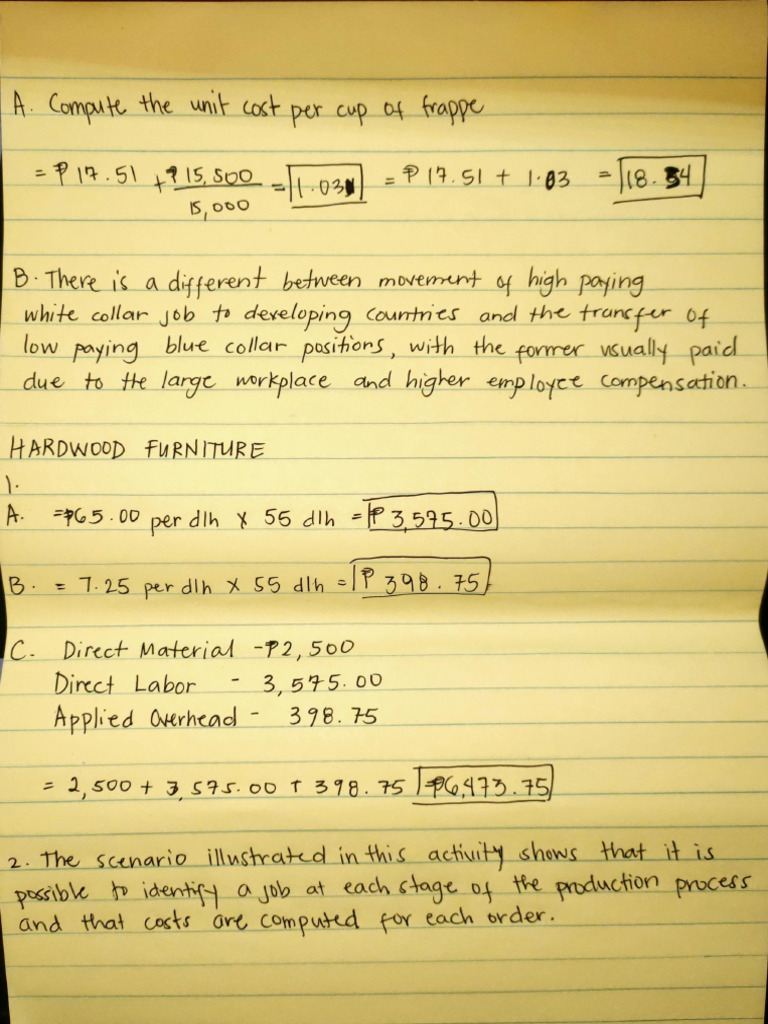 A. Compute the unit cost per cup of frappe
= ₱17.51 + ₱15,500 / 15,000 = 1.03 = ₱17.51 + 1.03 = 18.54
B. There is a different between movement of high paying
white collar job to developing countries and the transfer of
low paying blue collar positions, with the former usually paid
due to the large workplace and higher employee compensation.
HARDWOOD FURNITURE
1.
A. =₱65.00 per dlh x 55 dlh = ₱3,575.00
B. = 7.25 per dlh x 55 dlh = ₱398.75
C. Direct Material - ₱2,500
Direct Labor - 3,575.00
Applied Overhead - 398.75
= 2,500 + 3,575.00 + 398.75 ₱6,473.75
2. The scenario illustrated in this activity shows that it is
possible to identify a job at each stage of the production process
and that costs are computed for each order.